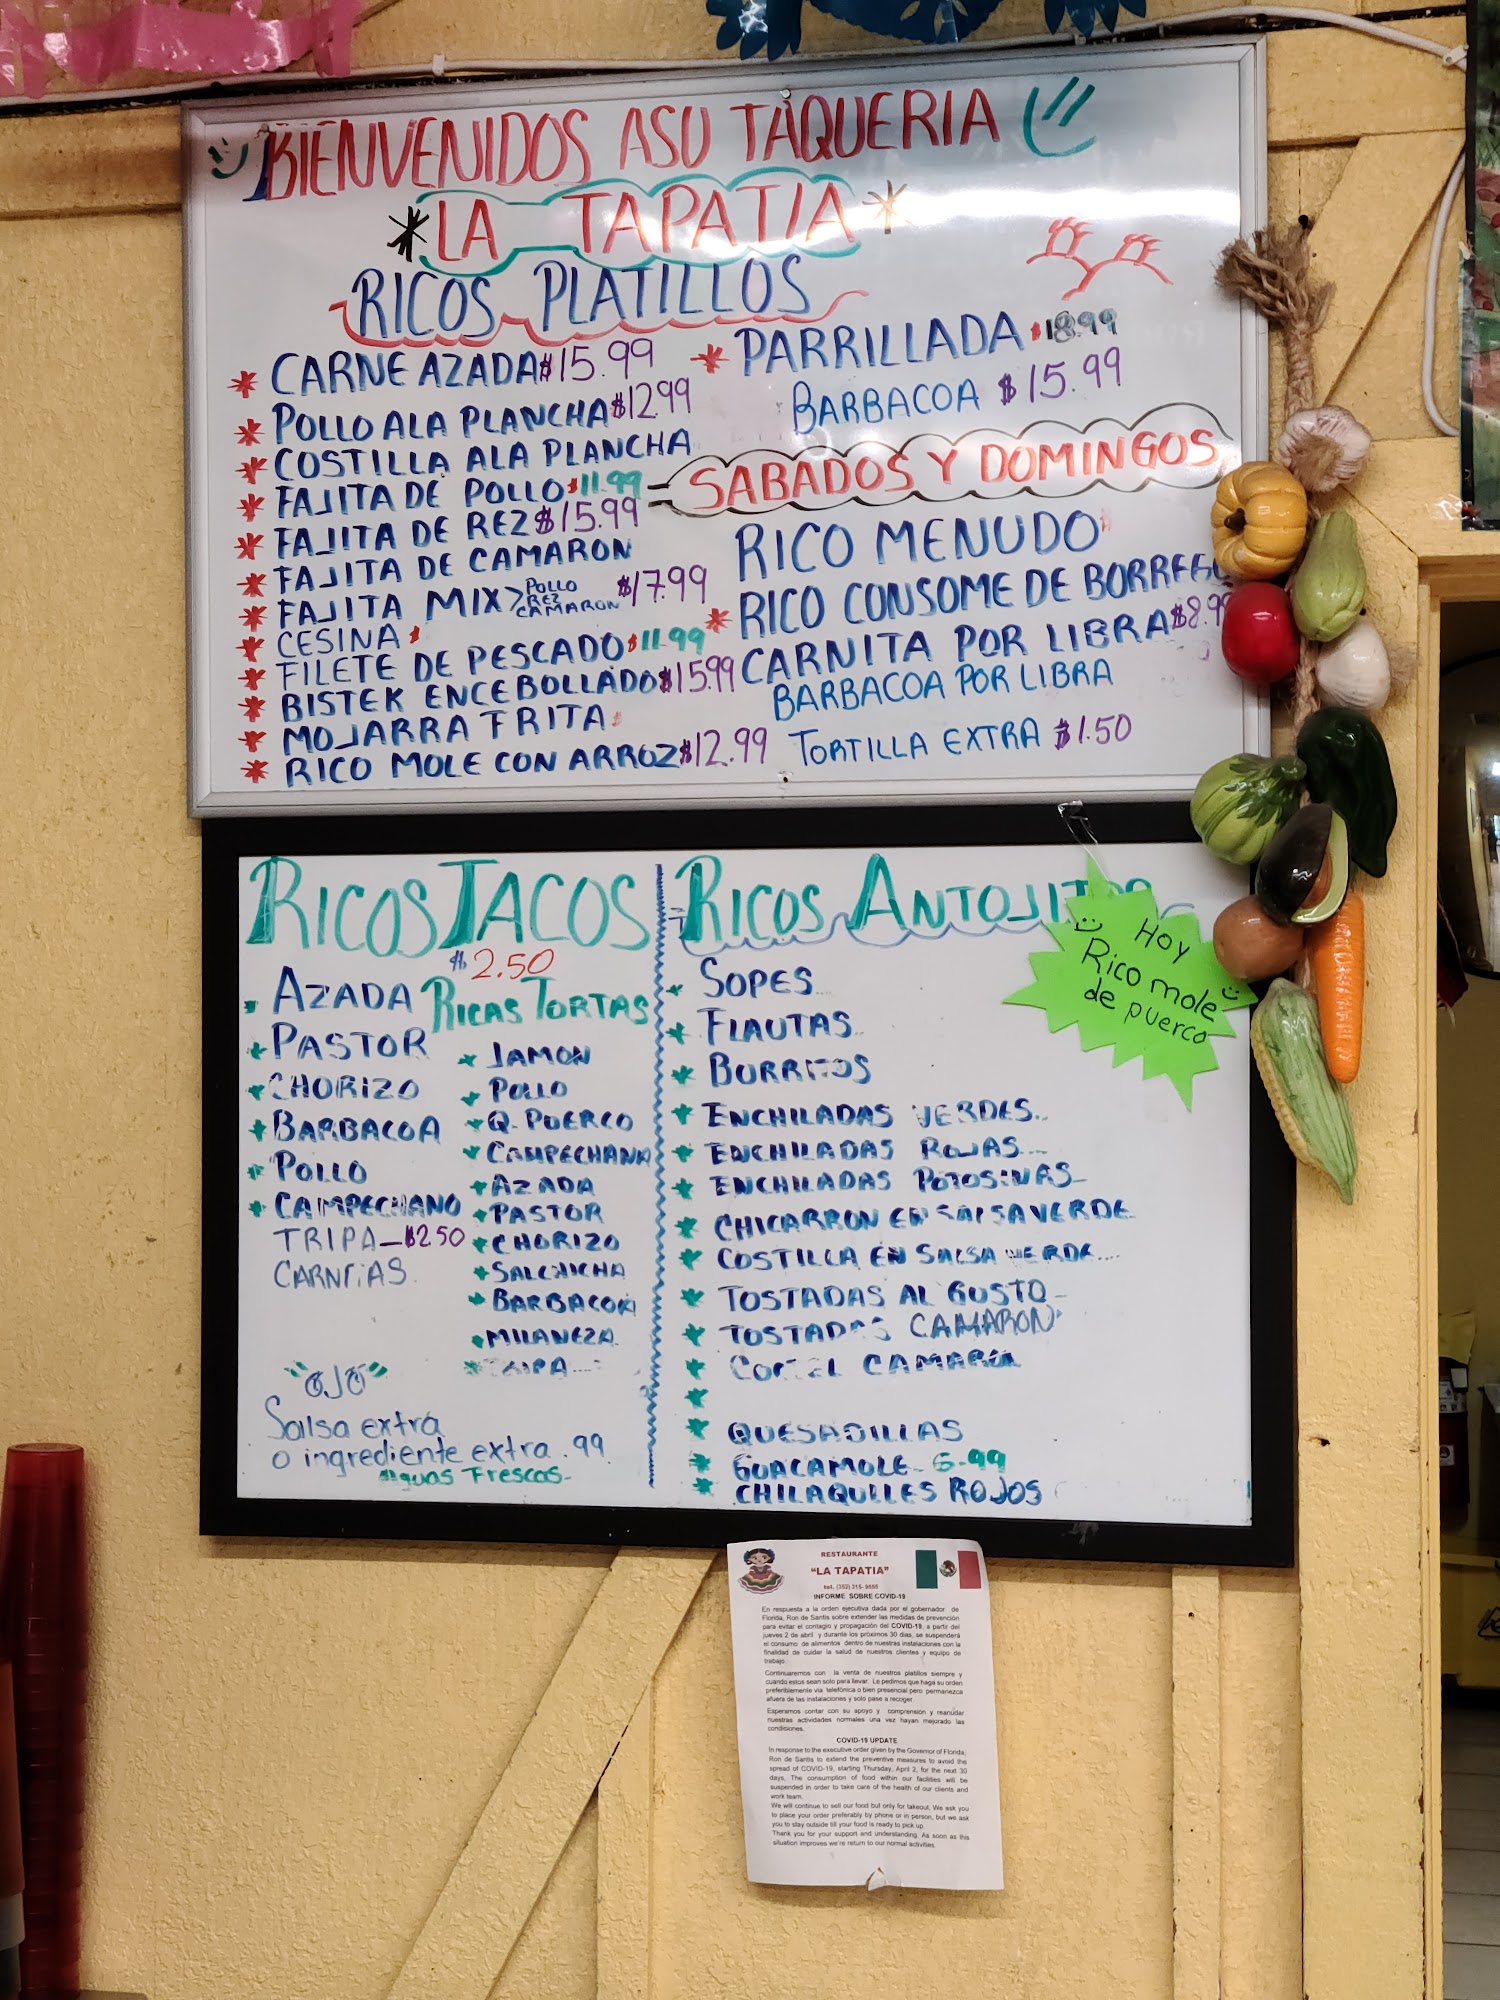 BIENVENIDOS ASU TAQUERIA
*LA TAPATIA*
RICOS PLATILLOS
* CARNE AZADA $15.99
* POLLO ALA PLANCHA $12.99
* COSTILLA ALA PLANCHA
* FAJITA DE POLLO $11.99
* FAJITA DE REZ $15.99
* FAJITA DE CAMARON
* FAJITA MIX > POLLO REZ CAMARON $17.99
* CESINA
* FILETE DE PESCADO $11.99
* BISTEK ENCEBOLLADO $15.99
* MOJARRA FRITA
* RICO MOLE CON ARROZ $12.99
* PARRILLADA $18.99
BARBACOA $15.99
SABADOS Y DOMINGOS
RICO MENUDO
* RICO CONSOME DE BORREGO
CARNITA POR LIBRA $8.99
BARBACOA POR LIBRA
TORTILLA EXTRA $1.50
RICOS TACOS
$2.50
AZADA
PASTOR
CHORIZO
BARBACOA
POLLO
CAMPECHANO
TRIPA - $2.50
CARNITAS
RICAS TORTAS
JAMON
POLLO
Q. PUERCO
CAMPECHANA
AZADA
PASTOR
CHORIZO
SALCHICHA
BARBACOA
MILANEZA
TRIPA....
"OJO"
Salsa extra
o ingrediente extra .99
Aguas Frescas-
RICOS ANTOJITOS
SOPES..
FLAUTAS
BURRITOS
ENCHILADAS VERDES..
ENCHILADAS ROJAS....
ENCHILADAS POTOSINAS-
CHICARRON EN SALSA VERDE
COSTILLA EN SALSA VERDE....
TOSTADAS AL GUSTO-
TOSTADAS CAMARON
COCTEL CAMARON
QUESADILLAS
GUACAMOLE - 6.99
CHILAQUILES ROJOS
Hoy
Rico mole
de puerco
RESTAURANTE
"LA TAPATIA"
tel. (352) 315- 9555
INFORME SOBRE COVID-19
En respuesta a la orden ejecutiva dada por el gobernador de
Florida, Ron de Santis sobre extender las medidas de prevención
para evitar el contagio y propagación del COVID-19, a partir del
jueves 2 de abril y durante los próximos 30 dias, se suspenderá
el consumo de alimentos dentro de nuestras instalaciones con la
finalidad de cuidar la salud de nuestros clientes y equipo de
trabajo.
Continuaremos con la venta de nuestros platillos siempre y
cuando estos sean solo para llevar. Le pedimos que haga su orden
preferiblemente via telefónica o bien presencial pero permanezca
afuera de las instalaciones y solo pase a recoger.
Esperamos contar con su apoyo y comprensión y reanudar
nuestras actividades normales una vez hayan mejorado las
condiciones.
COVID-19 UPDATE
In response to the executive order given by the Governor of Florida,
Ron de Santis to extend the preventive measures to avoid the
spread of COVID-19, starting Thursday, April 2, for the next 30
days, The consumption of food within our facilities will be
suspended in order to take care of the health of our clients and
work team.
We will continue to sell our food but only for takeout. We ask you
to place your order preferably by phone or in person, but we ask
you to stay outside till your food is ready to pick up.
Thank you for your support and understanding. As soon as this
situation improves we're return to our normal activities.